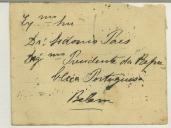 Ex.mo Snr
Dr. Sidonio Paes
Dig.mo Presidente da Repu
blica Portuguesa
Belem